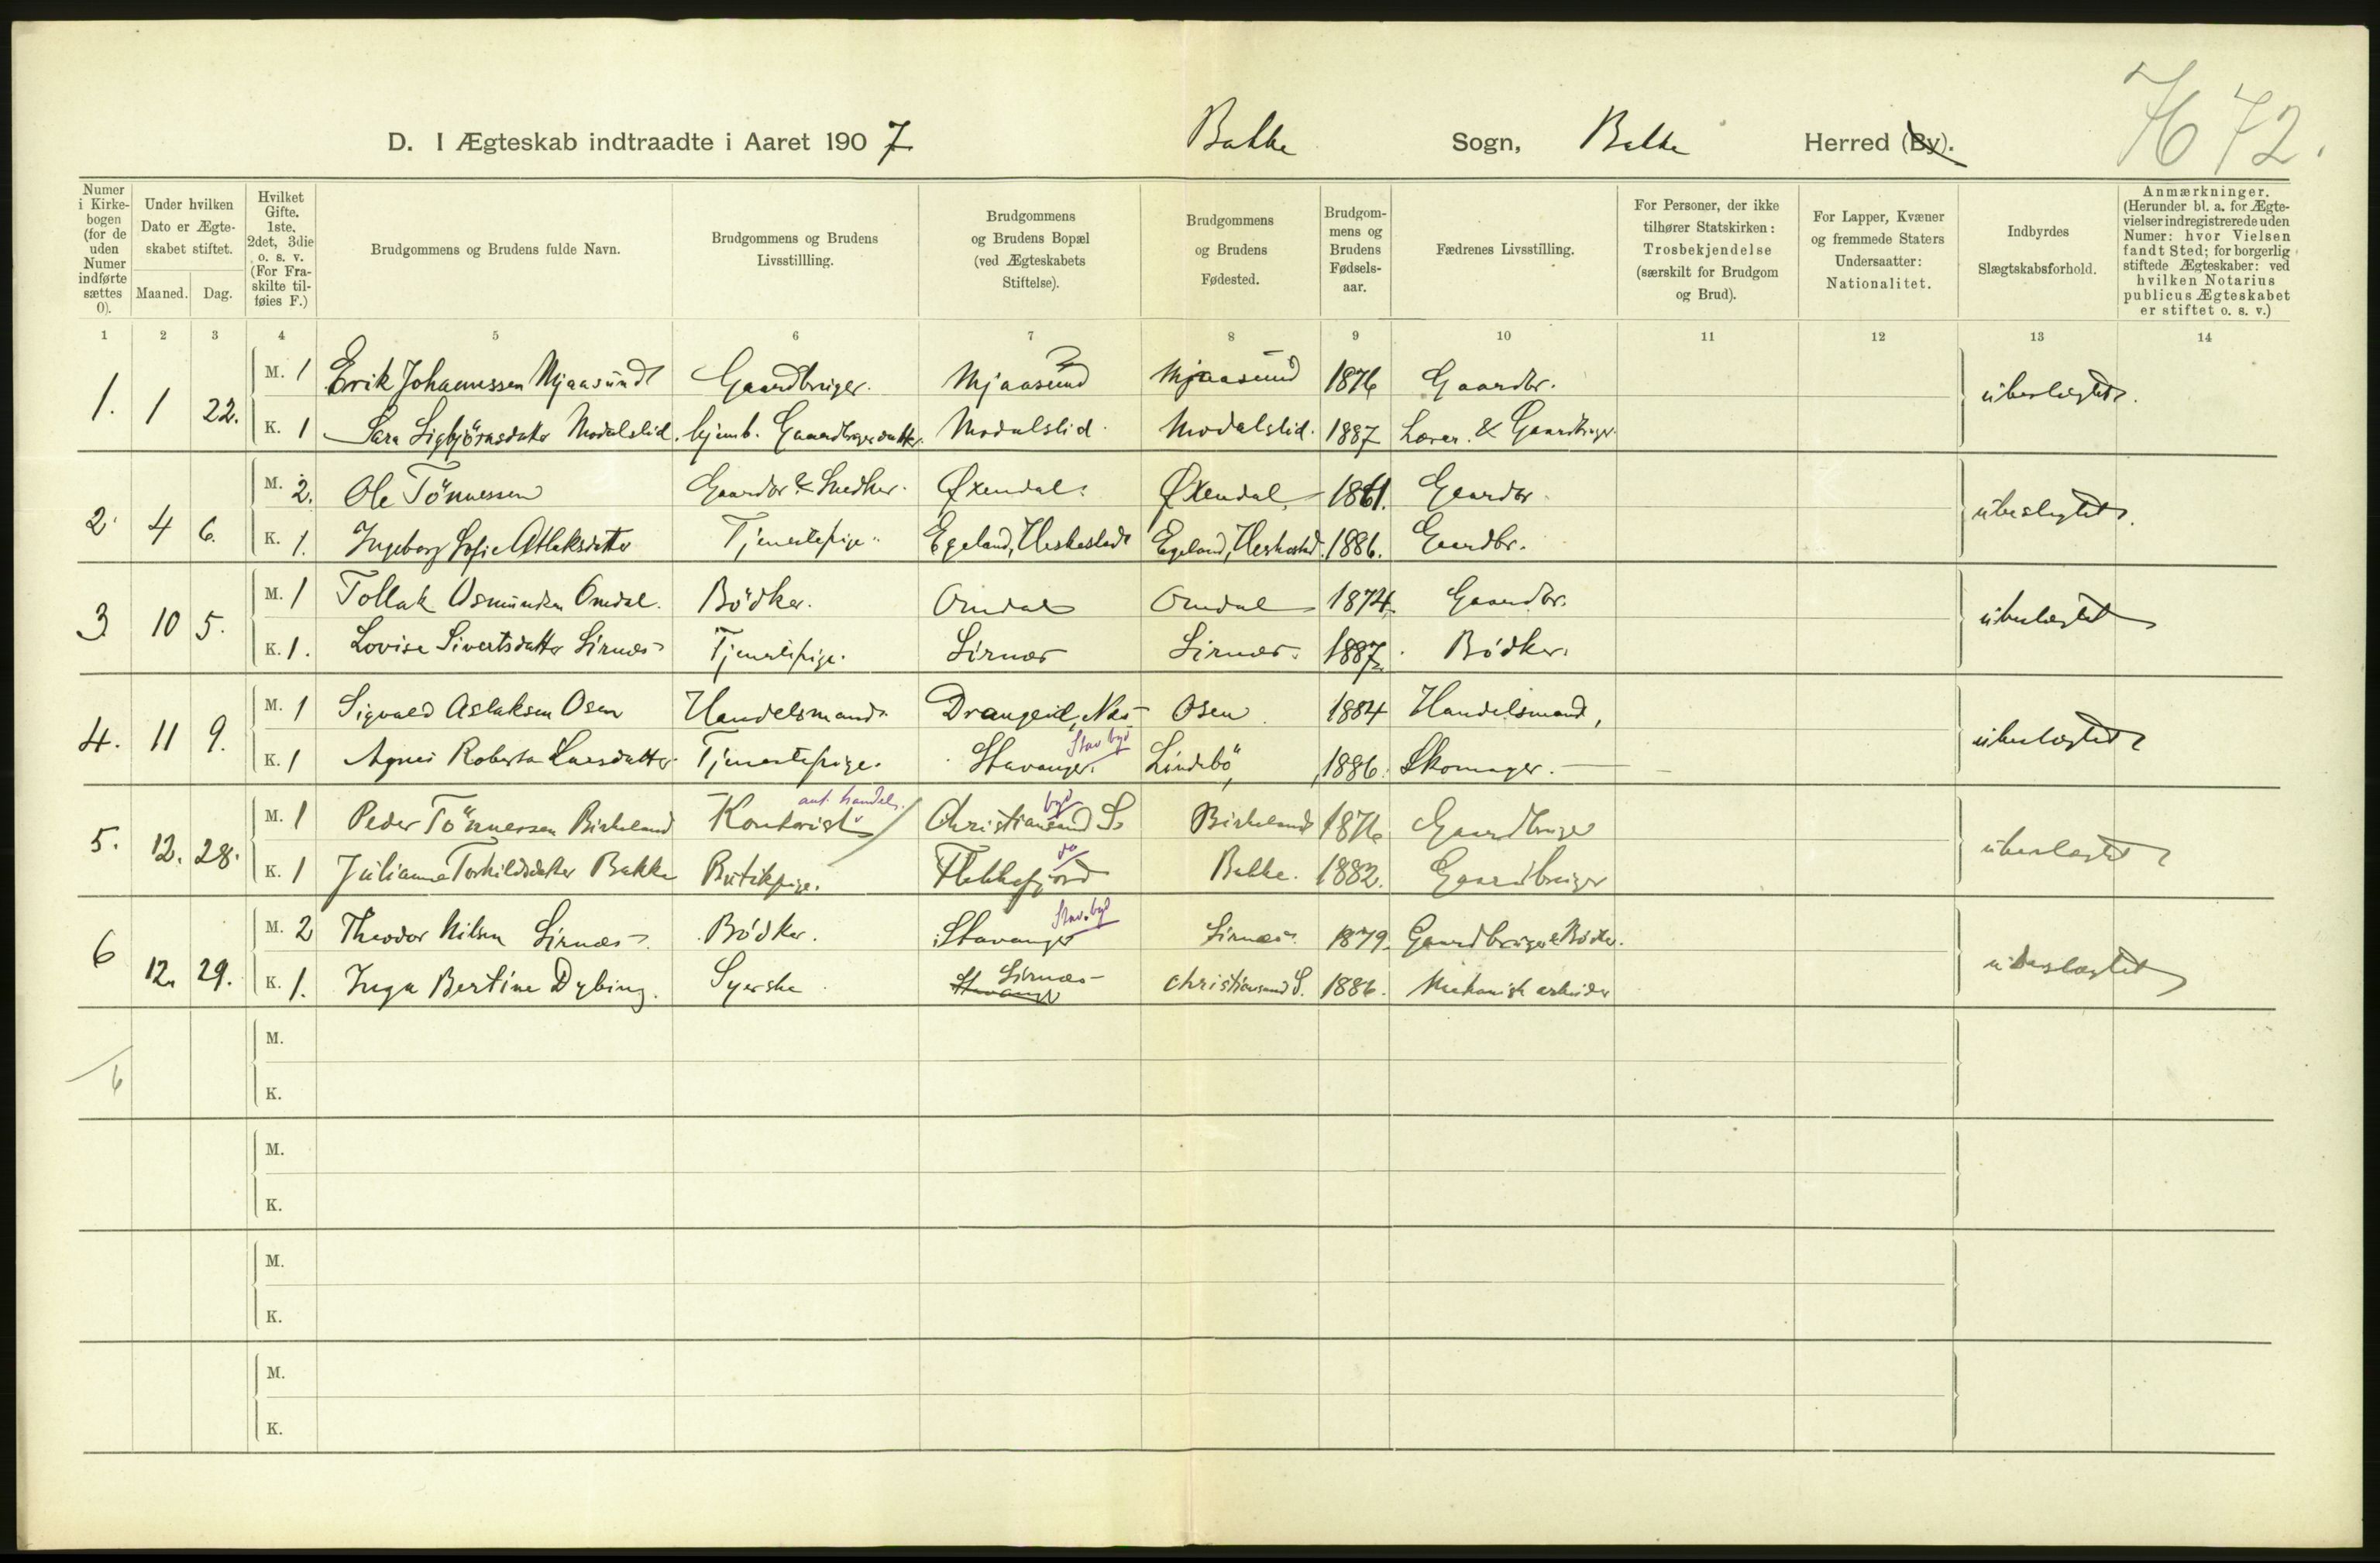 7672.
D. I Ægteskab indtraadte i Aaret 1907 Bakke Sogn, Bakke Herred (By).
Numer i Kirkebogen (for de uden Numer indførte sættes 0).
Under hvilken Dato er Ægteskabet stiftet.
Maaned. Dag.
Hvilket Gifte. 1ste, 2det, 3die o. s. v. (For Fraskilte tilføies F.)
Brudgommens og Brudens fulde Navn.
Brudgommens og Brudens Livsstillling.
Brudgommens og Brudens Bopæl (ved Ægteskabets Stiftelse).
Brudgommens og Brudens Fødested.
Brudgommens og Brudens Fødselsaar.
Fædrenes Livsstilling.
For Personer, der ikke tilhører Statskirken: Trosbekjendelse (særskilt for Brudgom og Brud).
For Lapper, Kvæner og fremmede Staters Undersaatter: Nationalitet.
Indbyrdes Slægtskabsforhold.
Anmærkninger. (Herunder bl. a. for Ægtevielser indregistrerede uden Numer: hvor Vielsen fandt Sted; for borgerlig stiftede Ægteskaber: ved hvilken Notarius publicus Ægteskabet er stiftet o. s. v.)
1 2 3 4 5 6 7 8 9 10 11 12 13 14
1. 1 22. M. 1 Erik Johannessen Mjaasünd Gaardbruger. Mjaasund Mjaasund 1876 Gaardbr. übeslægtet.
K. 1 Sara Sigbjörnsdatter Modalslid. hjemb. Gaardbrugerdatter. Modalslid. Modalslid. 1887 Lærer & Gaardbruger.
2. 4 6. M. 2. Ole Tönnessen Gaardbr & Snedker. Øxendal. Øxendal 1861. Gaardbr. übeslægtet.
K. 1. Ingeborg Sofie Atlaksdatter Tjenestepige. Egeland, Heskestad Egeland, Heskestad. 1886. Gaardbr.
3 10 5. M. 1 Tollak Osmundsen Omdal. Bödker. Omdal Omdal 1874. Gaardbr. übeslægtet
K. 1. Lovise Sivertsdatter Sirnæs Tjenestepige. Sirnæs Sirnæs. 1887. Bödker.
4. 11 9. M. 1 Sigvald Aslaksen Osen Handelsmand. Drangeid, Næs Osen 1884 Handelsmand, übeslægtet
Stav byd
K. 1 Agnes Roberta Larsdatter Tjenestepige. Stavanger. Lindebö, 1886. Skomager.
ant. handels. byd
5. 12. 28. M. 1 Peder Tönnessen Birkeland Kontorist Christiansand S. Birkeland 1876 Gaardbruger übeslægtet
do
K. 1 Juliane Torkildsdatter Bakke Butikpige. Flekkefjord Bakke. 1882. Gaardbruger
Stav. byd
6 12. 29. M. 2 Theodor Nilsen Sirnæs. Bödker. Stavanger Sirnæs. 1879. Gaardbruger & Bödker. übeslægtet
K. 1. Inga Bertine Dybing. Syerske Sirnæs Stavanger Christiansand S. 1886. Mekanisk arbeider
M.
6
K.
M.
K.
M.
K.
M.
K.